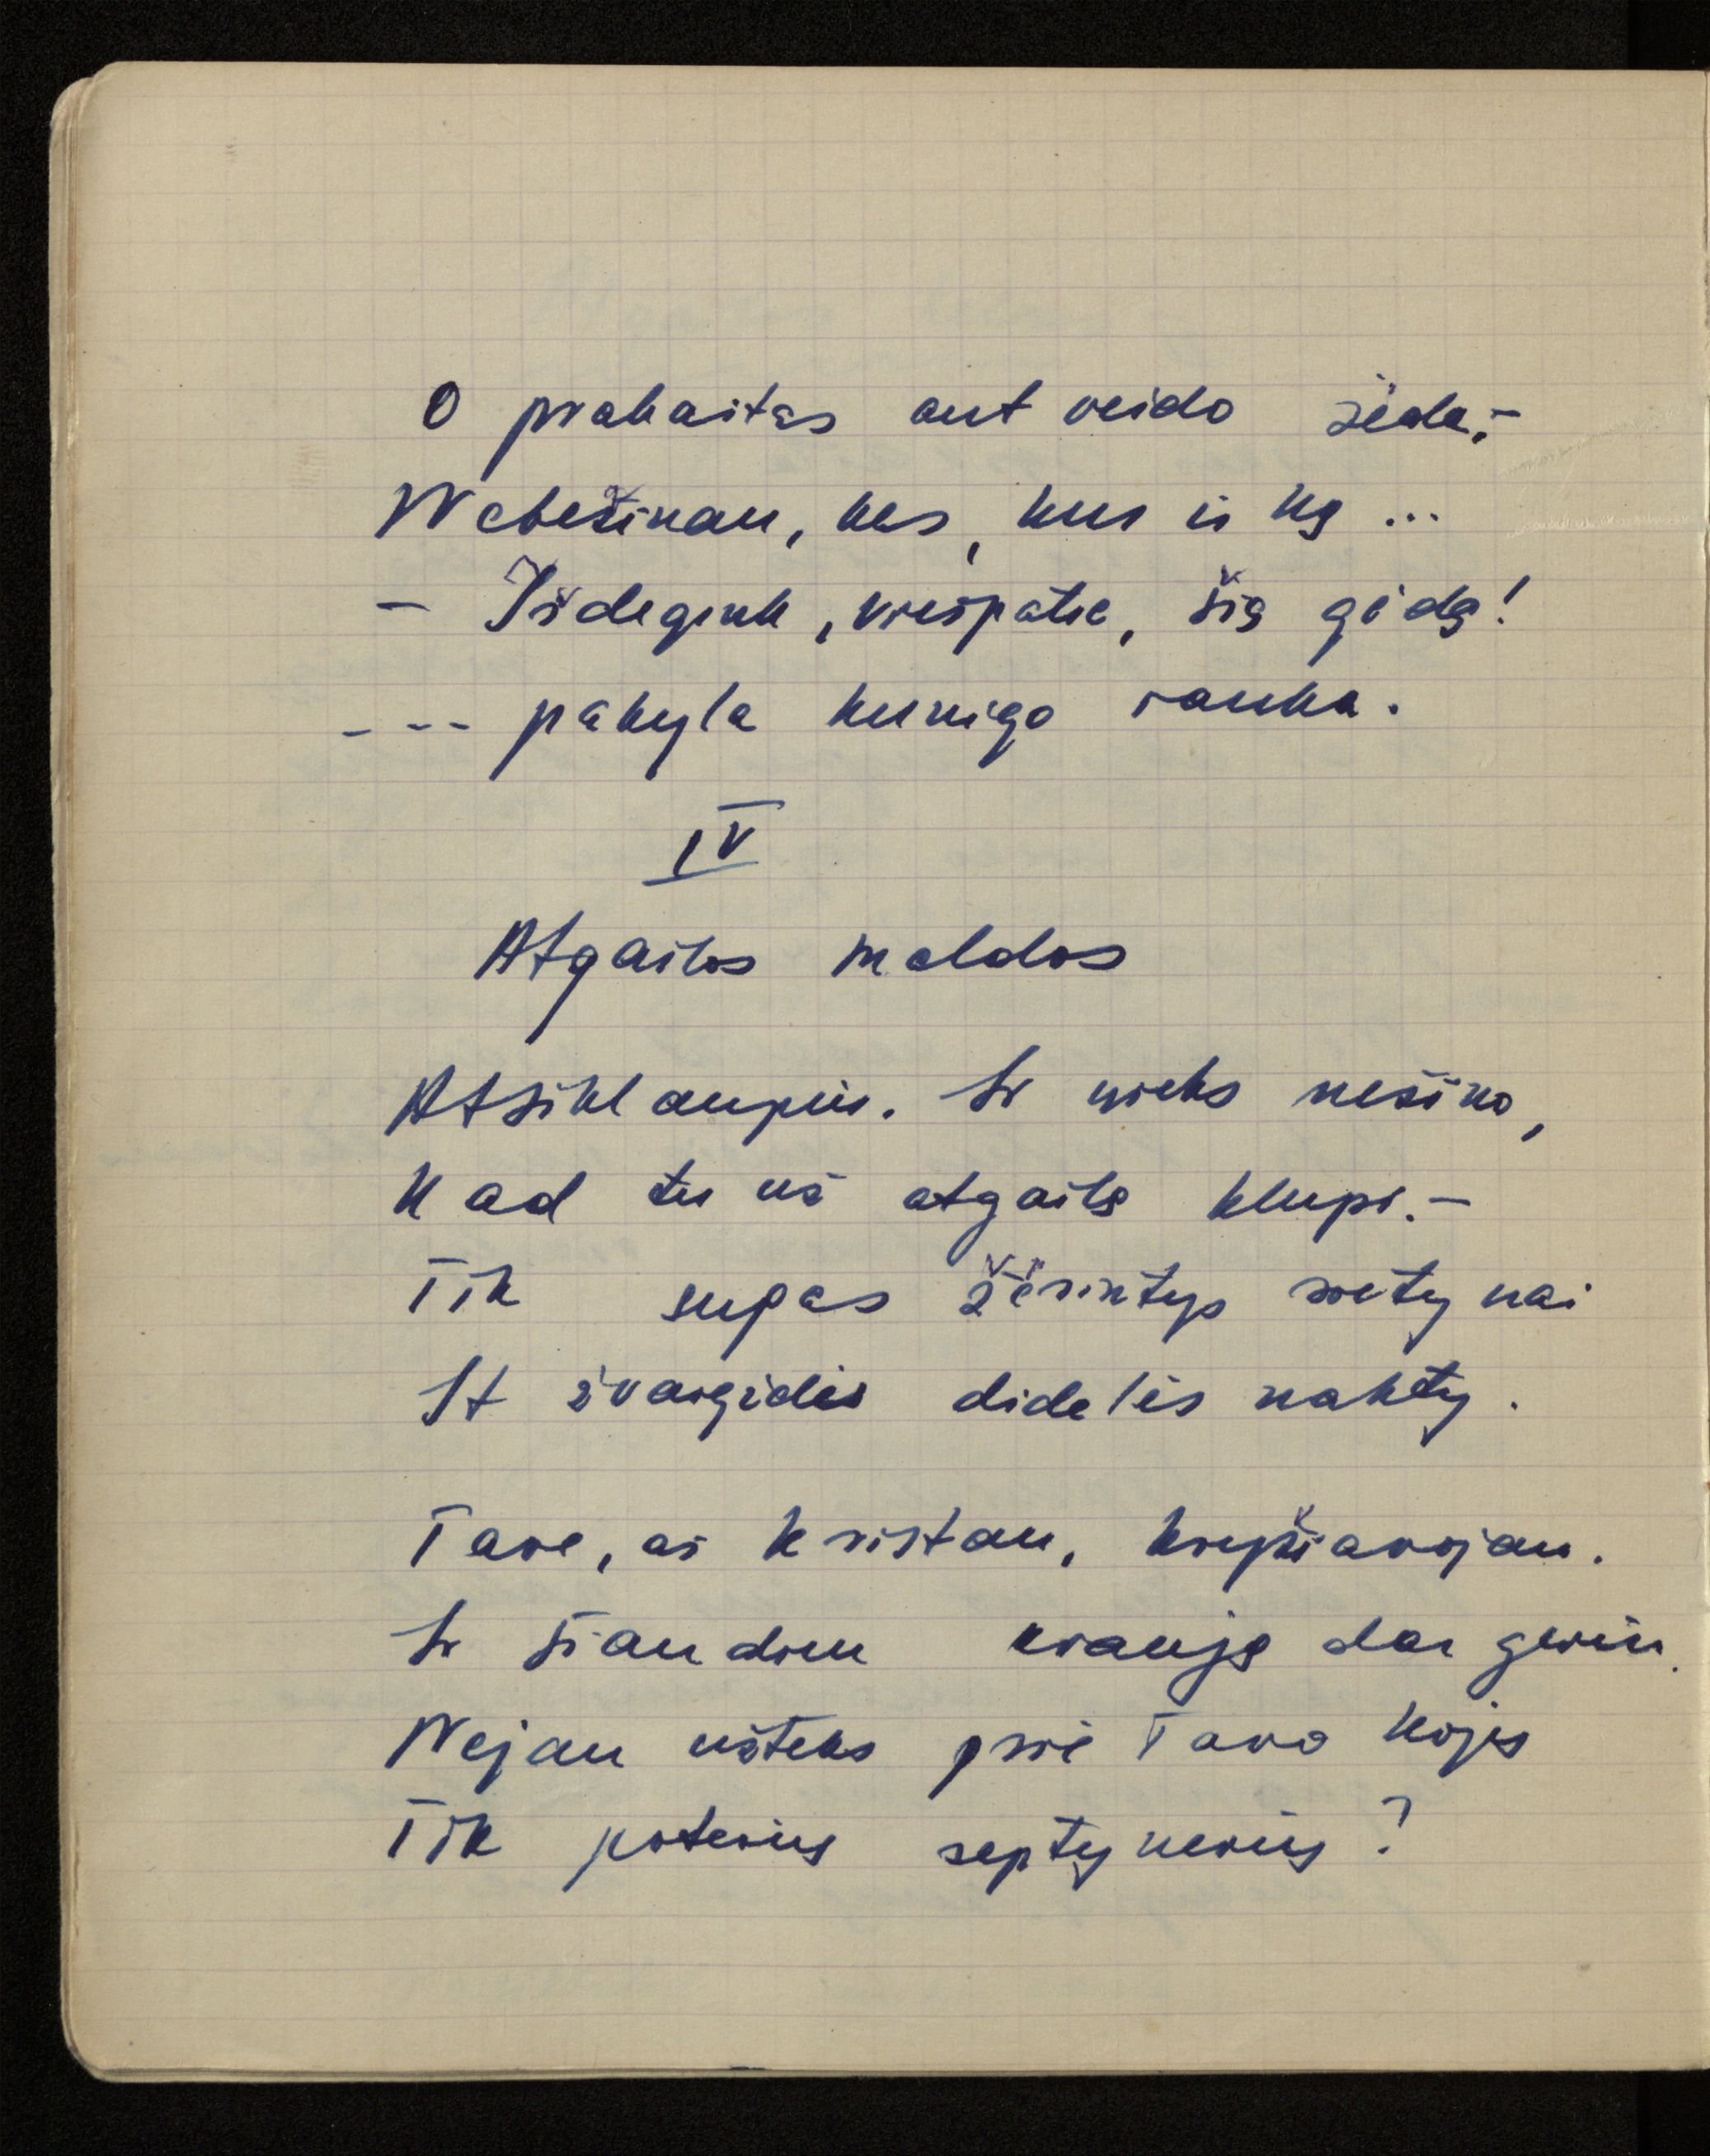 O prakaitas ant veido žėde,-
Nebežinau, kas, kur ir ką ...
- Išdegink, viešpatie, šią gėdą!
- -- pakyla kunigo ranka.
IV
Atgailos maldos
Atsiklaupiu. Ir nieks nežino,
Kad tu už atgailą klupi.-
Tik supas žėrintys svetynai
It žvaigždės didelės naktų.
Tave, ai Kristau, kryžiavojau.
Ir šiandien kraują dar geriu.
Nejau užteks prie Tavo kojų
Tik poterių septynerių?